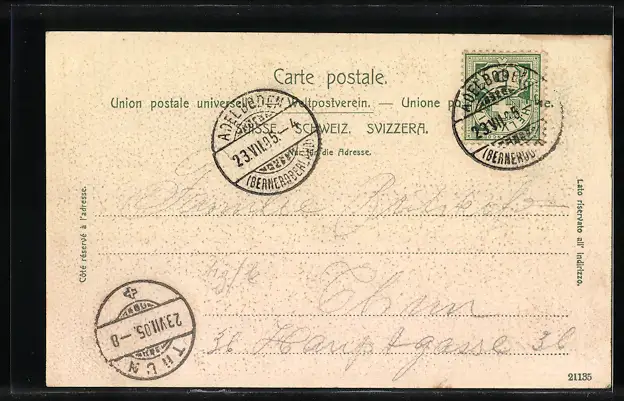 Carte postale.
Union postale universelle. — Weltpostverein. — Unione postale universale.
SUISSE. SCHWEIZ. SVIZZERA.
Nur für die Adresse.
Côté réservé à l'adresse.
Lato riservato all' indirizzo.
ADELBODEN
23.VII.05.–4
(BERNEROBERLAND)
ADELBODEN
23.VII.05.–4
(BERNEROBERLAND)
THUN
23.VII.05.–8
Thun
36 Hauptgasse 36
21135